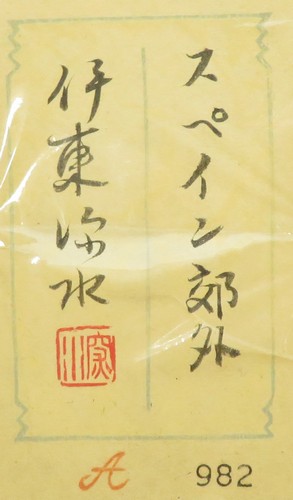 スペイン郊外
伊東深水
深水
A 982